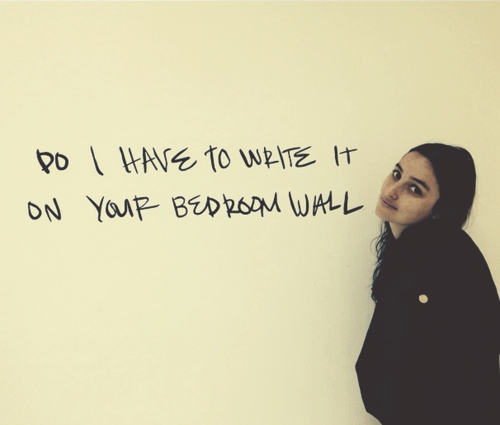 DO I HAVE TO WRITE IT
ON YOUR BEDROOM WALL